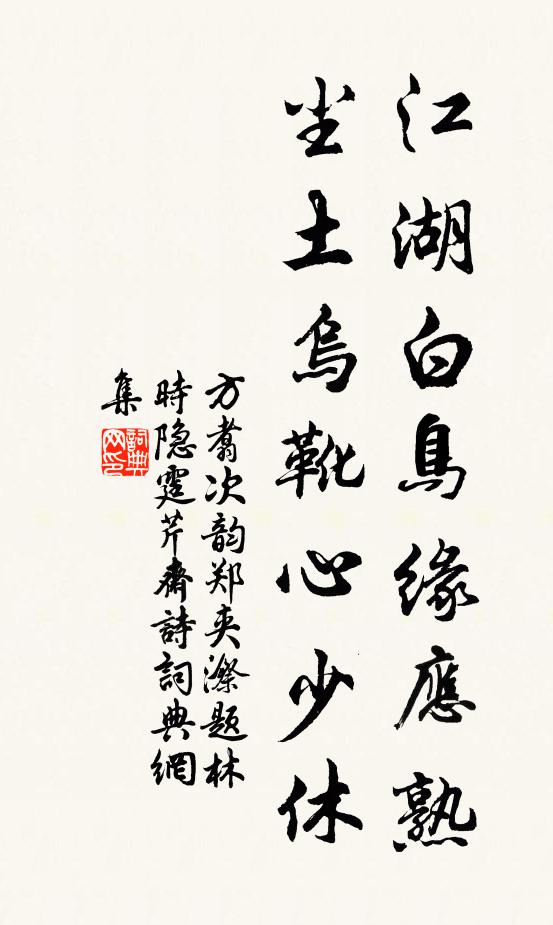 江湖白鳥緣應熟
尘土烏靴心少休
方翥次韵郑夹漈题林
時隐霆芹齋詩詞典網
集
詞典网印